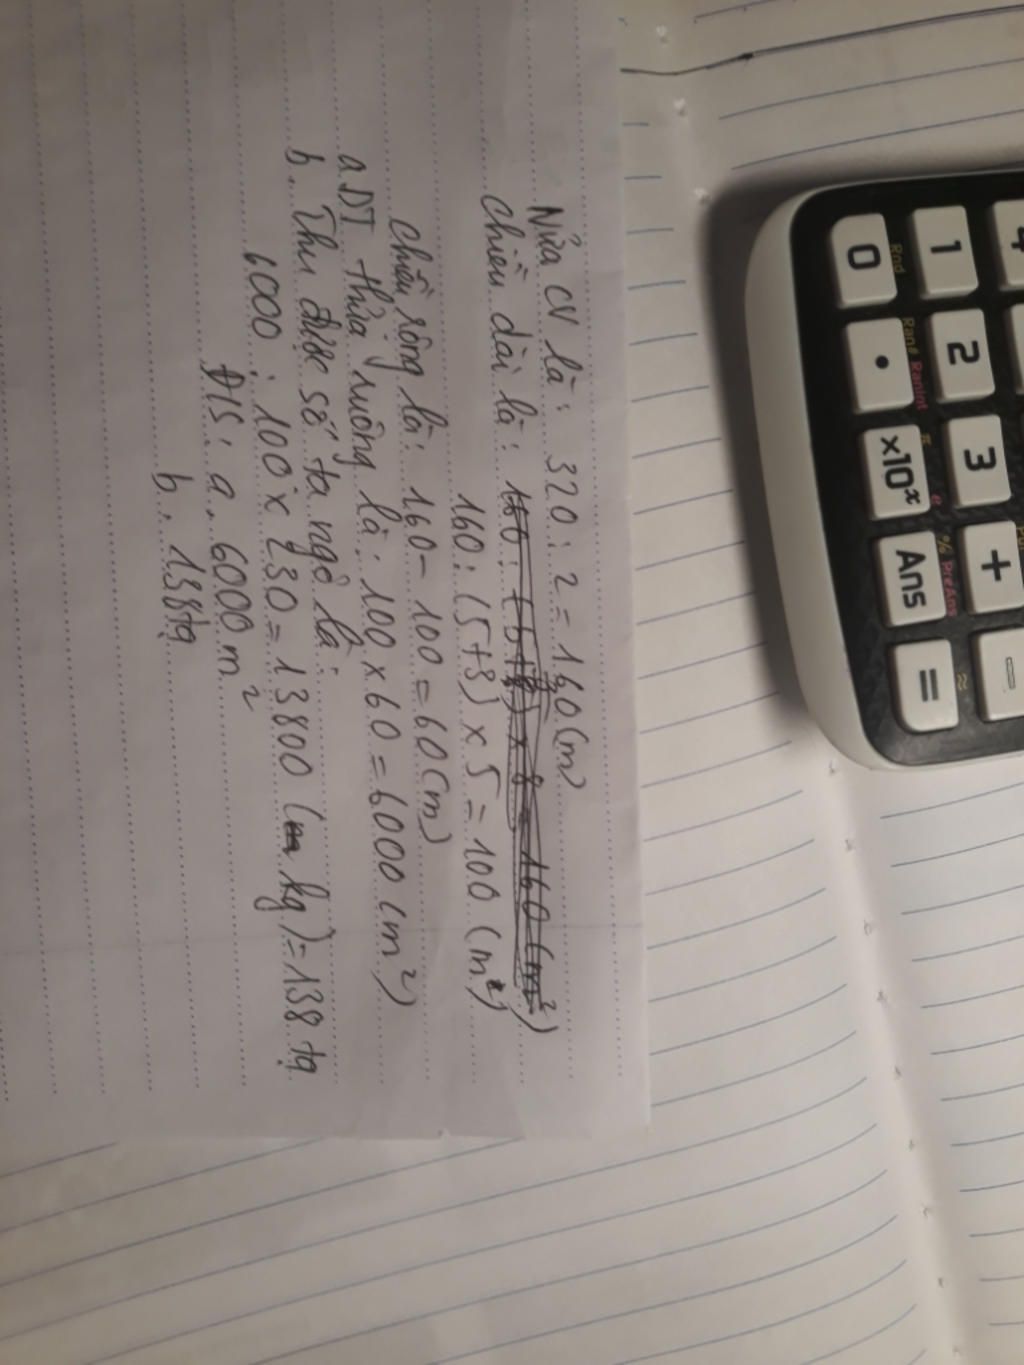 Nửa CV là: 320 : 2 = 160 (m)
Chiều dài là:
160 : (5+3) x 5 = 100 (m²)
Chiều rộng là: 160 - 100 = 60 (m)
a DT thửa ruộng là: 100 x 60 = 6000 (m²)
b. Thu được số tạ ngô là:
6000 : 100 x 230 = 13800 (kg) = 138 tạ
ĐS: a. 6000 m²
b. 138 tạ
4
0 1 2 3 + -
. x10ˣ Ans =
Rnd Ran# RanInt π e % PreAns ≈